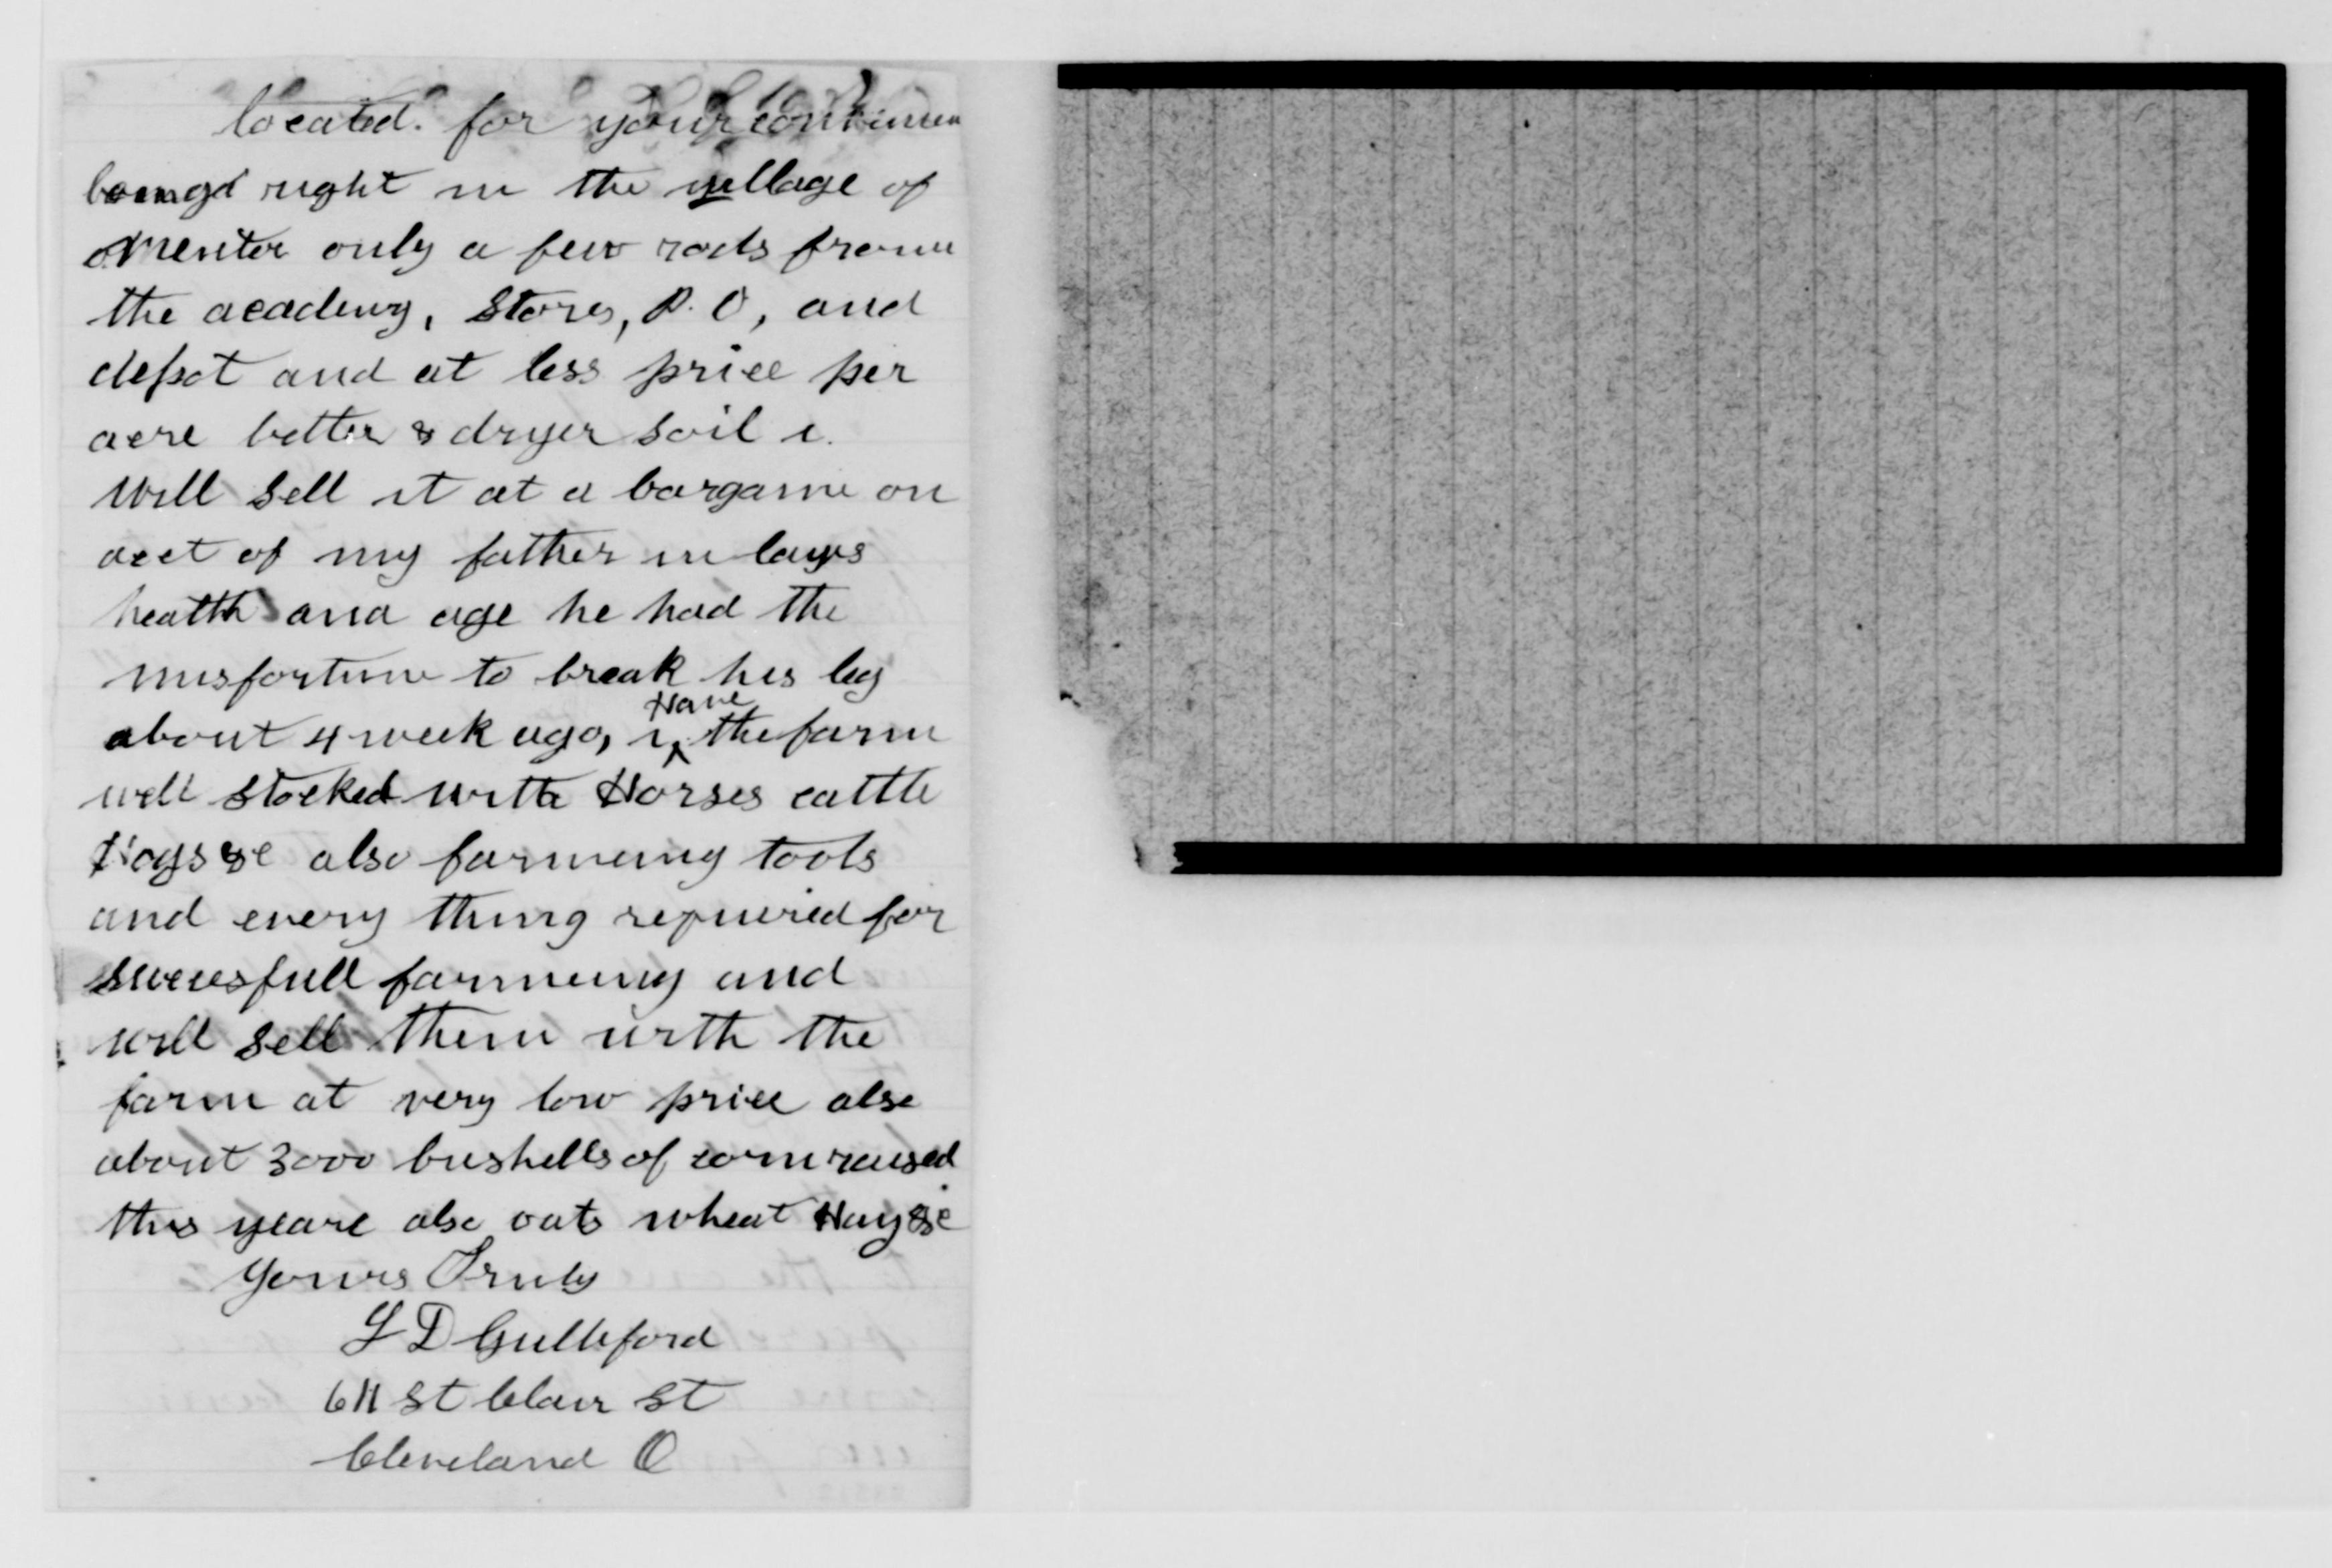 located. for your
right in the village of
Mentor only a few rods from
the academy, Stores, P. O, and
depot and at less price per
acre better & dryer soil i.
Will sell it at a bargaine on
acct of my father in laws
health and age he had the
misfortune to break his leg
about 4 week ago, i Have the farm
well stocked with Horses cattle
Hogs &c also farmeing tools
and every thing required for
successfull farmeing and
will sell them with the
farm at very low price also
about 3000 bushells of corn raised
this yeare also oats wheat Hay &c
Yours Truly
L D Gulleford
611 St Clair St
Cleveland O